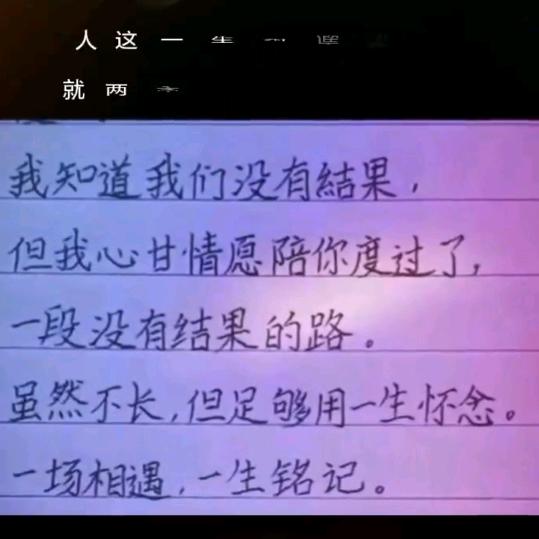 人这一
就两
我知道我们没有結果，
但我心甘情愿陪你度过了，
一段没有结果的路。
虽然不长，但足够用一生怀念。
一场相遇，一生铭记。